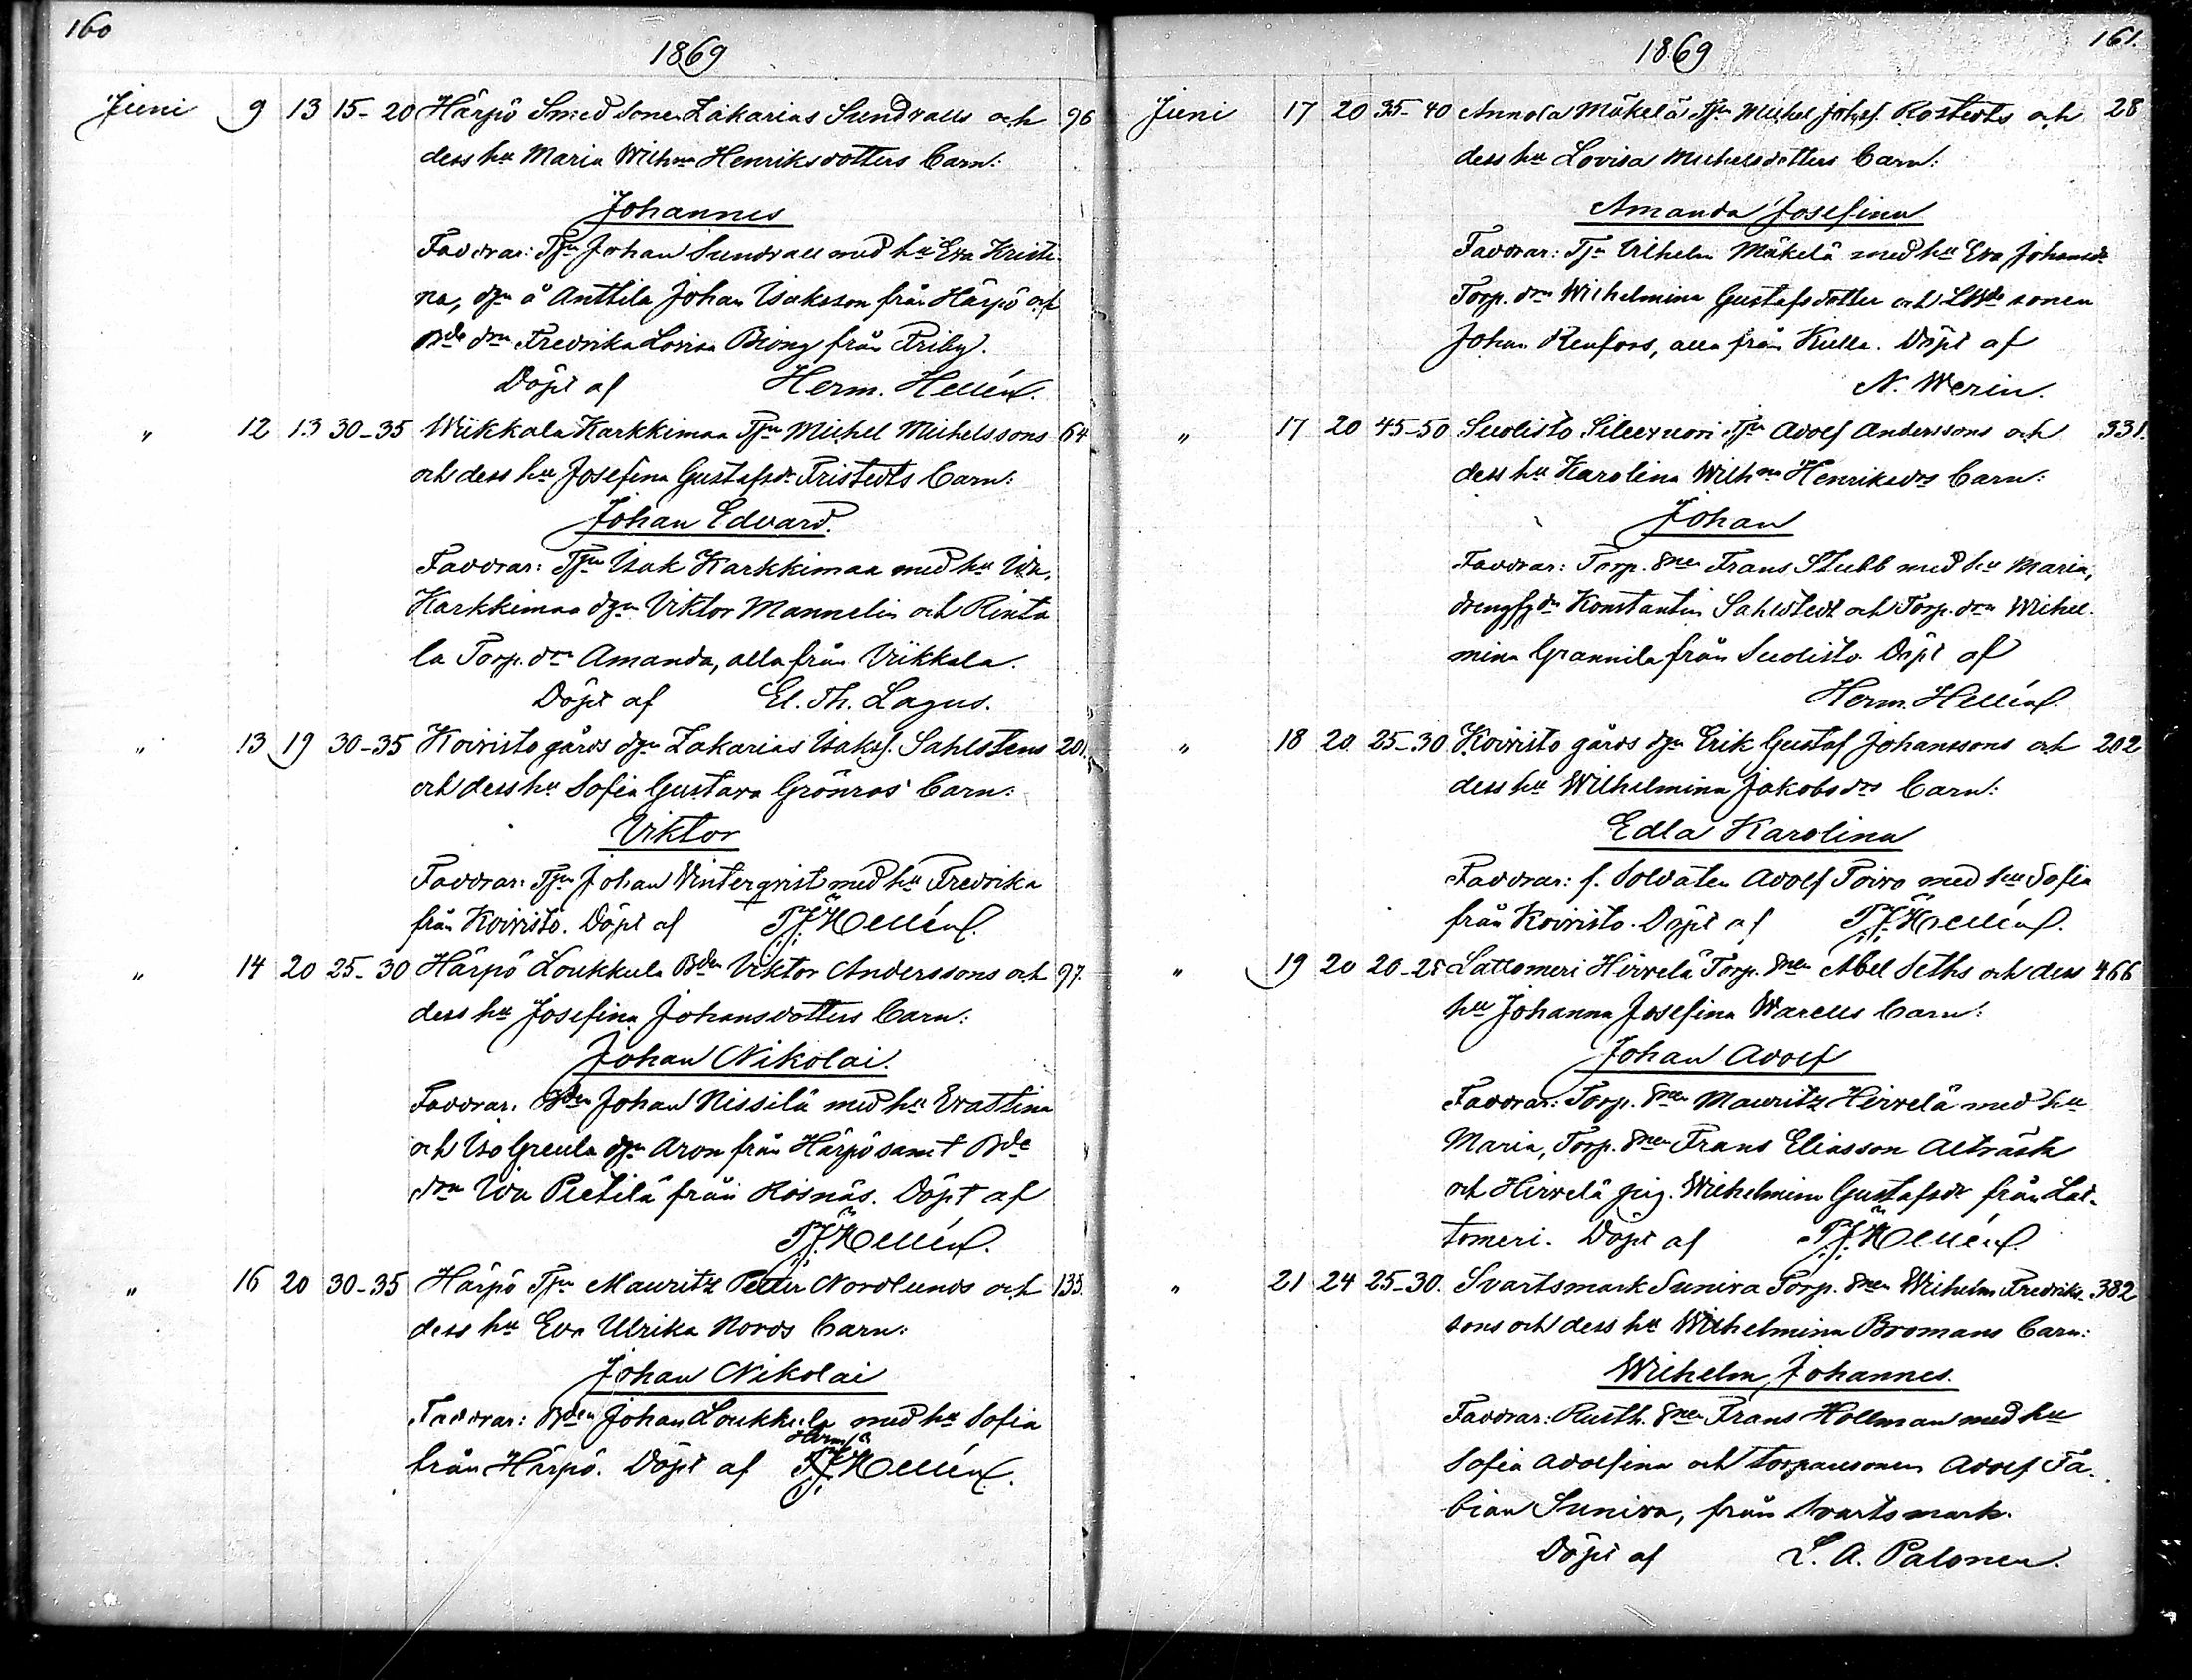 160
1869
Juni 9 13 15-20 Härpö Smedsonen Zakarias Sundvalls och 96
dess hu Maria Wilhna Henriksdotters barn:
Johannes
Faddrar: Tjn Johan Sundvall med hu Eva Kristi-
na, dgn å Anttila Johan Isaksson från Härpö och
Bde drn Fredrika Lovisa Biong från Friby.
Döpt af Herm. Hellén.
" 12 13 30-35 Wiikkala Karkkimaa Tjn Michel Michelssons 64
och dess hu Josefina Gustafsdr Fristedts barn:
Johan Edvard.
Faddrar: Tjn Isak Karkkimaa med hu Ida,
Karkkimaa dgn Viktor Mannelin och Rinta
la Torp. drn Amanda, alla från Viikkala.
Döpt af El. Th. Lagus.
" 13 19 30-35 Koivisto gårds dgn Zakarias Isaksf. Sahlstens 201.
och dess hu Sofia Gustava Grönros' barn:
Viktor
Faddrar: Tjn Johan Vinterqvist med hu Fredrika
från Koivisto. Döpt af F.J. Hellén.
" 14 20 25-30 Härpö Loukkula Bden Viktor Anderssons och 97.
dess hu Josefina Johansdotters barn:
Johan Nikolai.
Faddrar: Bden Johan Nissilä med hu Evastina
och Iso Greula dgn Aron från Härpö samt Bde
drn Ida Pietilä från Rosnäs. Döpt af
F.J. Hellén.
" 16 20 30-35 Härpö Tjn Mauritz Petter Nordlunds och 135.
dess hu Eva Ulrika Nords barn:
Johan Nikolai
Faddrar: Bden Johan Loukkula med hu Sofia
Herm
från Härpö. Döpt af F.J. Hellén.
161.
1869
Juni 17 20 35-40 Annola Mäkelä Tjn Michel Johsf. Rostedts och 28
dess hu Lovisa Michelsdotters barn:
Amanda Josefina
Faddrar: Tjn Vilhelm Mäkelä med hu Eva Johansdr
Torp. drn Wilhelmina Gustafsdotter och LBde sonen
Johan Renfors, alla från Kulla. Döpt af
N. Werin.
" 17 20 45-50 Suolisto Silevuori Tjn Adolf Anderssons och 331.
dess hu Karolina Wilhna Henriksdrs barn:
Johan
Faddrar: Torp. snen Frans Stubb med hu Maria,
drengfgdn Konstantin Sahlstedt och Torp. drn Wilhel-
mina Grannila från Suolisto. Döpt af
Herm. Hellén.
" 18 20 25-30 Koivisto gårds dgn Erik Gustaf Johanssons och 202
dess hu Wilhelmina Jakobsdrs barn:
Edla Karolina
Faddrar: f. Soldaten Adolf Toivo med hu Sofia
från Koivisto. Döpt af F.J. Hellén.
" 19 20 20-25 Lattomeri Hirvelä Torp. snen Abel Seths och dess 466
hu Johanna Josefina Warells barn:
Johan Adolf
Faddrar: Torp. snen Mauritz Hirvelä med hu
Maria, Torp. snen Frans Eliasson Alträsk
och Hirvelä pig. Wilhelmina Gustafsdr från Lat-
tomeri. Döpt af F.J. Hellén.
" 21 24 25-30. Svartsmark Suniva Torp. snen Wilhelm Fredriks- 382
sons och dess hu Wilhelmina Bromans barn:
Wilhelm Johannes.
Faddrar: Rusth. snen Frans Hollman med hu
Sofia Adolfina och torparesonen Adolf Fa-
bian Suniva, från Svartsmark.
Döpt af L. A. Palonen.